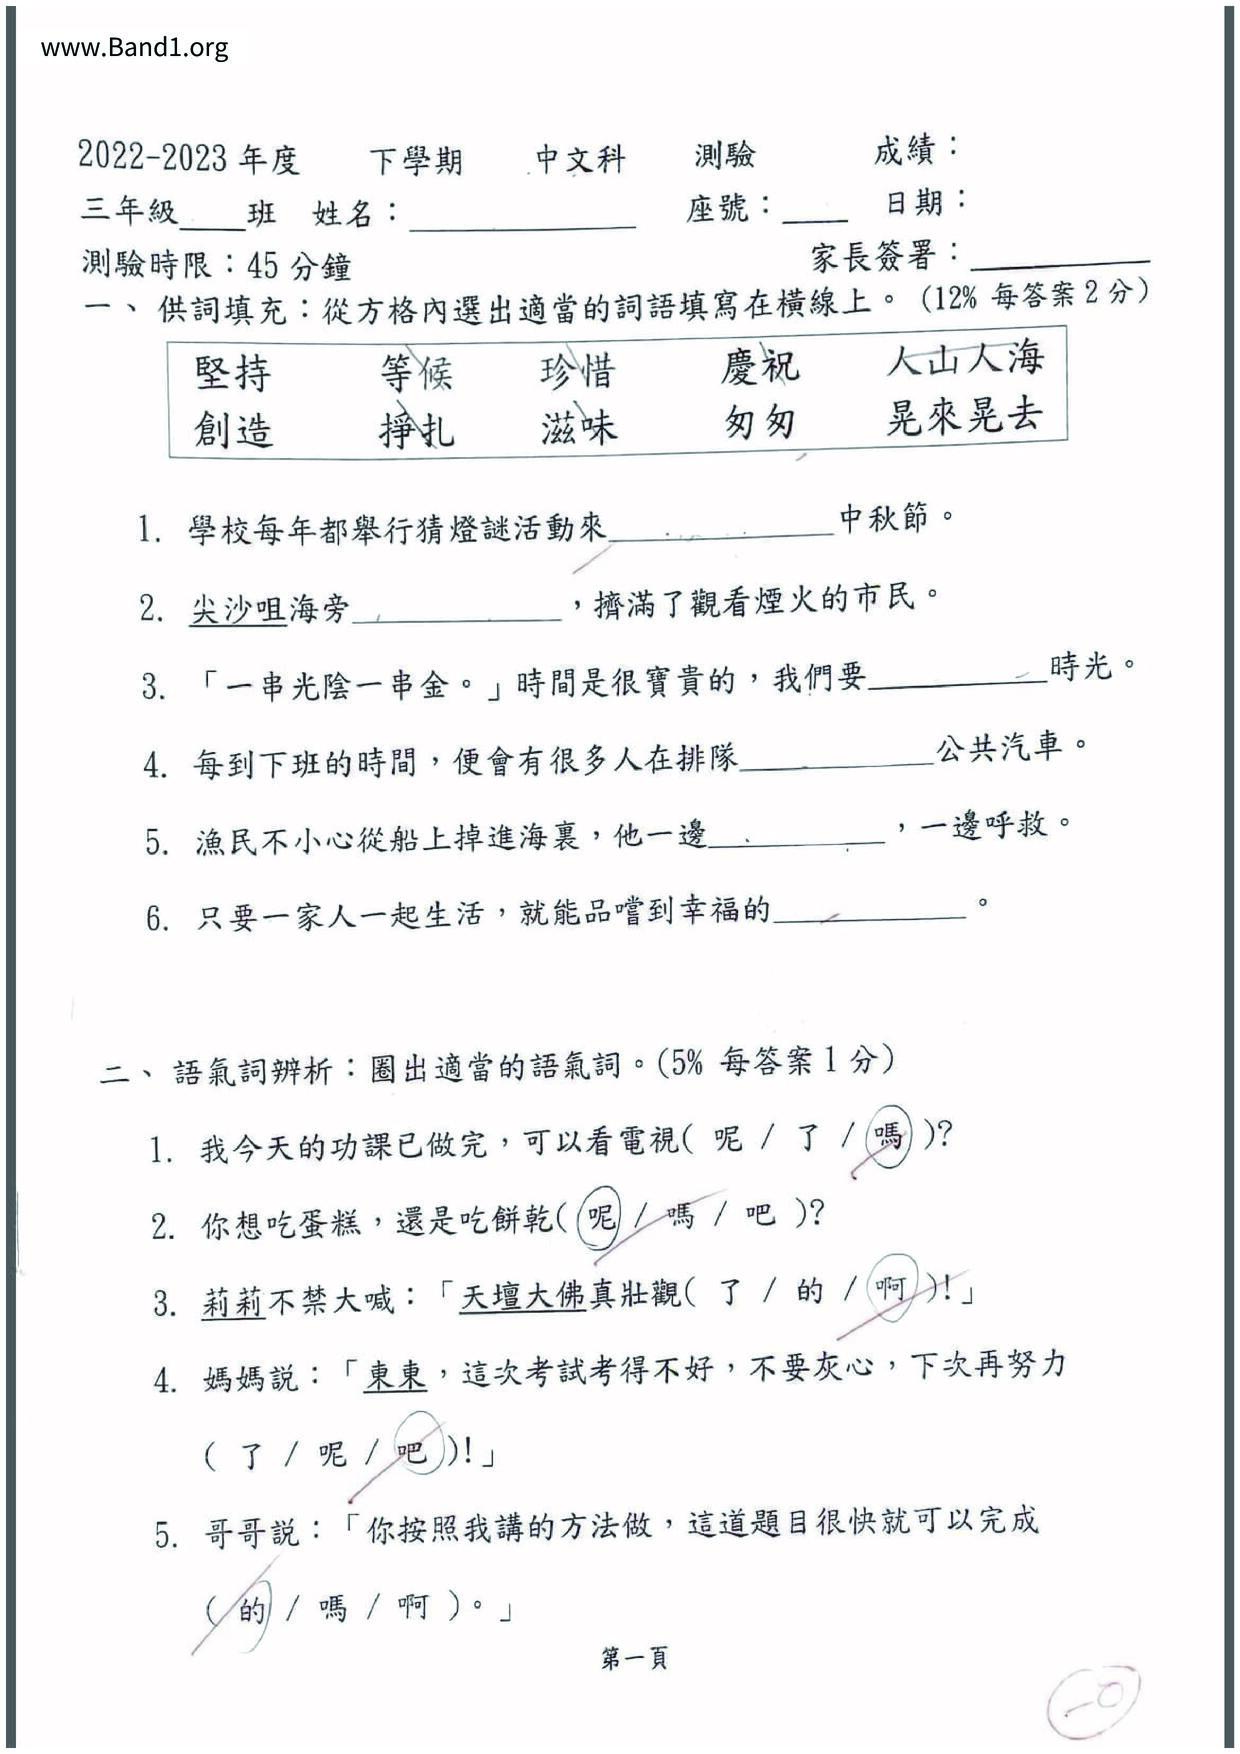 www.Band1.org
2022-2023 年度 下學期 中文科 測驗 成績：
三年級____班 姓名：______________ 座號：____ 日期：
測驗時限：45 分鐘 家長簽署：___________
一、 供詞填充：從方格內選出適當的詞語填寫在橫線上。(12% 每答案 2 分)
堅持 等候 珍惜 慶祝 人山人海
創造 掙扎 滋味 匆匆 晃來晃去
1. 學校每年都舉行猜燈謎活動來______________中秋節。
2. 尖沙咀海旁_____________，擠滿了觀看煙火的市民。
3. 「一串光陰一串金。」時間是很寶貴的，我們要___________時光。
4. 每到下班的時間，便會有很多人在排隊____________公共汽車。
5. 漁民不小心從船上掉進海裏，他一邊___________，一邊呼救。
6. 只要一家人一起生活，就能品嚐到幸福的____________。
二、 語氣詞辨析：圈出適當的語氣詞。(5% 每答案 1 分)
1. 我今天的功課已做完，可以看電視( 呢 / 了 / 嗎 )?
2. 你想吃蛋糕，還是吃餅乾( 呢 / 嗎 / 吧 )?
3. 莉莉不禁大喊：「天壇大佛真壯觀( 了 / 的 / 啊 )!」
4. 媽媽説：「東東，這次考試考得不好，不要灰心，下次再努力
( 了 / 呢 / 吧 )!」
5. 哥哥説：「你按照我講的方法做，這道題目很快就可以完成
( 的 / 嗎 / 啊 )。」
第一頁
-0